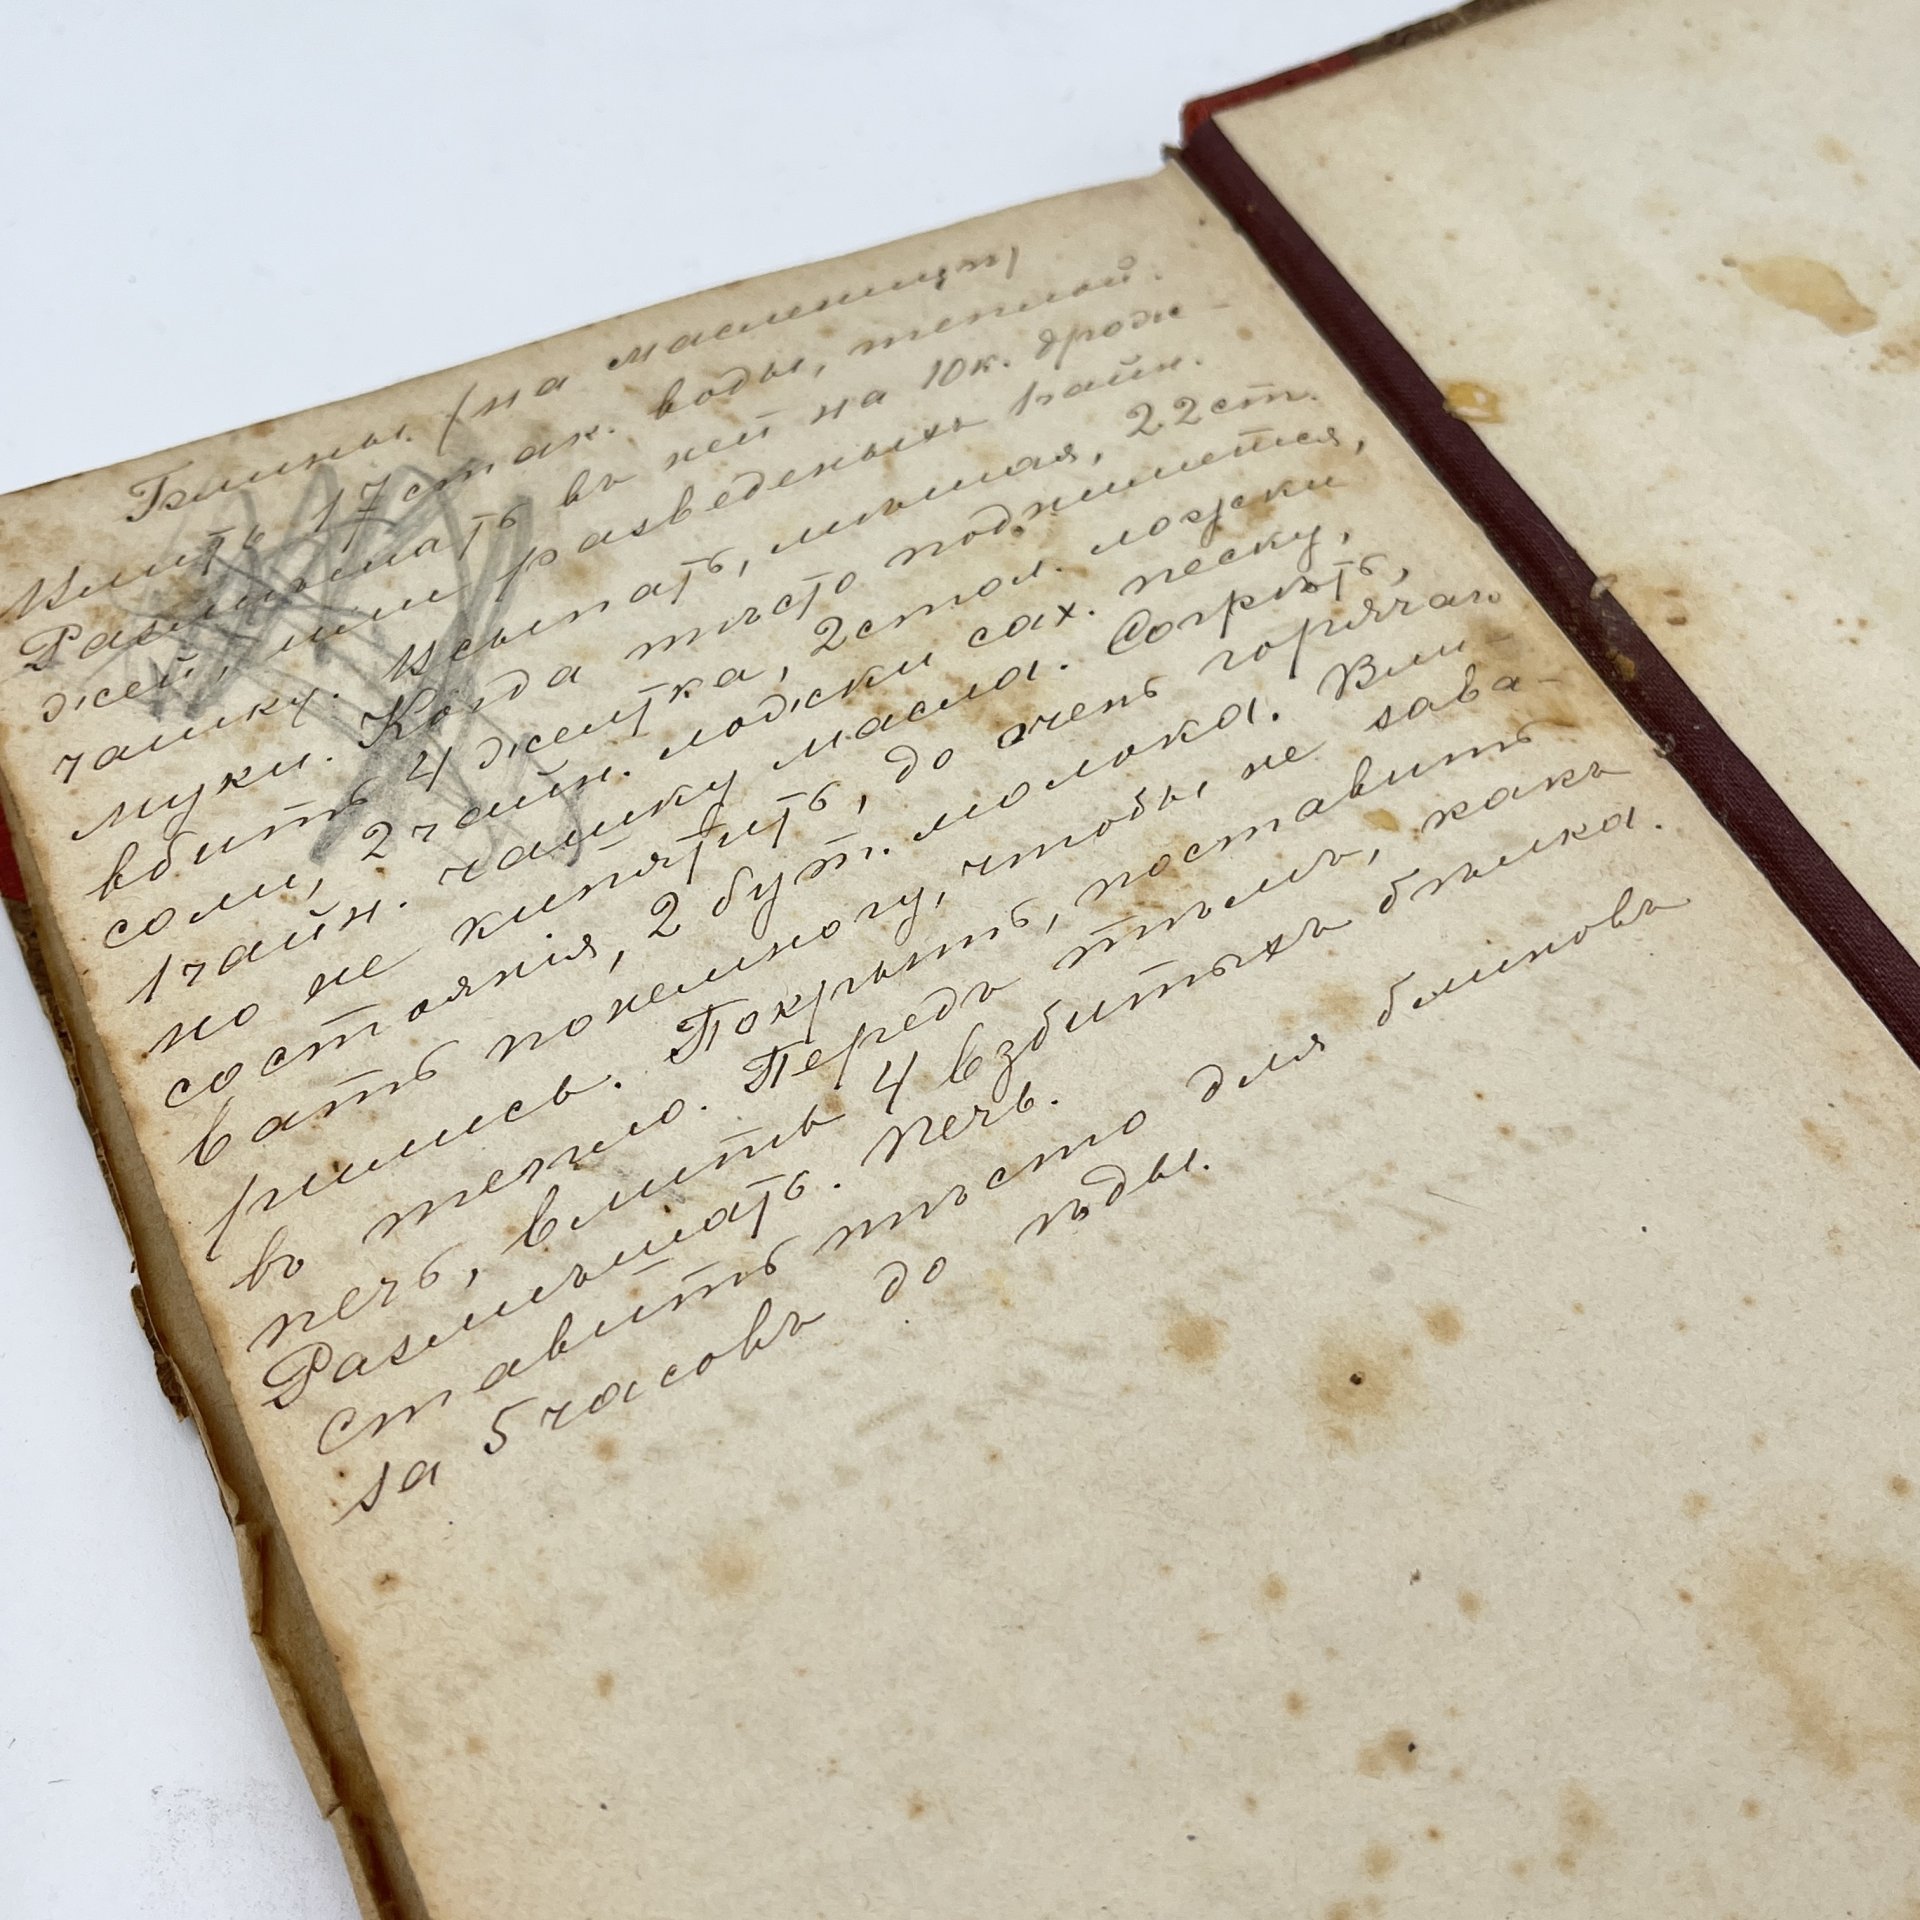 Блины. (на масленицу)
Влить 17 стак. воды, теплой.
Размѣшать въ ней на 10к. дрож-
жей, или разведеныхъ 1 чайн.
чашку. Всыпать, мѣшая, 22 ст.
муки. Когда тѣсто поднимется,
вбить 4 желтка, 2 стол. ложки
соли, 2 чайн. ложки сах. песку,
1 чайн. чашку масла. Согрѣть,
но не кипятить, до очень горячаго
состоянія, 2 бут. молока. Вли-
вать понемногу, чтобы не зава-
рились. Покрыть, поставить
въ тепло. Передъ тѣмъ, какъ
печь, влить 4 взбитыхъ бѣлка.
Размѣшать. Печь.
Ставить тѣсто для блиновъ
за 5 часовъ до ѣды.